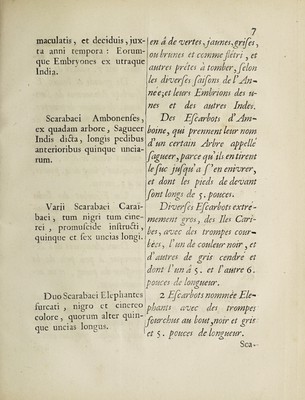 7
maculatis, et deciduis, jux-
ta anni tempora : Eorum-
que Embryones ex utraque
India.
Scarabaei Ambonenses,
ex quadam arbore, Sagueer
Indis dicta, longis pedibus
anterioribus quinque uncia-
rum.
Varii Scarabaei Carai-
baei, tum nigri tum cine-
rei, promuscide instructi,
quinque et sex uncias longi.
Duo Scarabaei Elephantes
furcati, nigro et cinereo
colore, quorum alter quin-
que uncias longus.
en a de vertes, jaunes, grises,
ou brunes et comme flétri, et
autres prétes à tomber, selon
les diverses saisons de l'An-
née; et leurs Embrions des u-
nes et des autres Indes.
Des Escarbots d'Am-
boine, qui prennent leur nom
d'un certain Arbre appellé
sagueer, parce qu'ils en tirent
le suc jusqu'a s'enivrer,
et dont les pieds de devant
sont longs de 5. pouces.
Diverses Escarbots extré-
mement gros, des Iles Cari-
bes, avec des trompes cour-
bées, l'un de couleur noir, et
d'autres de gris cendré et
dont l'un à 5. et l'autre 6.
pouces de longueur.
2 Escarbots nommée Ele-
phants avec des trompes
fourchus au bout, noir et gris
et 5. pouces de longueur.
Sca-